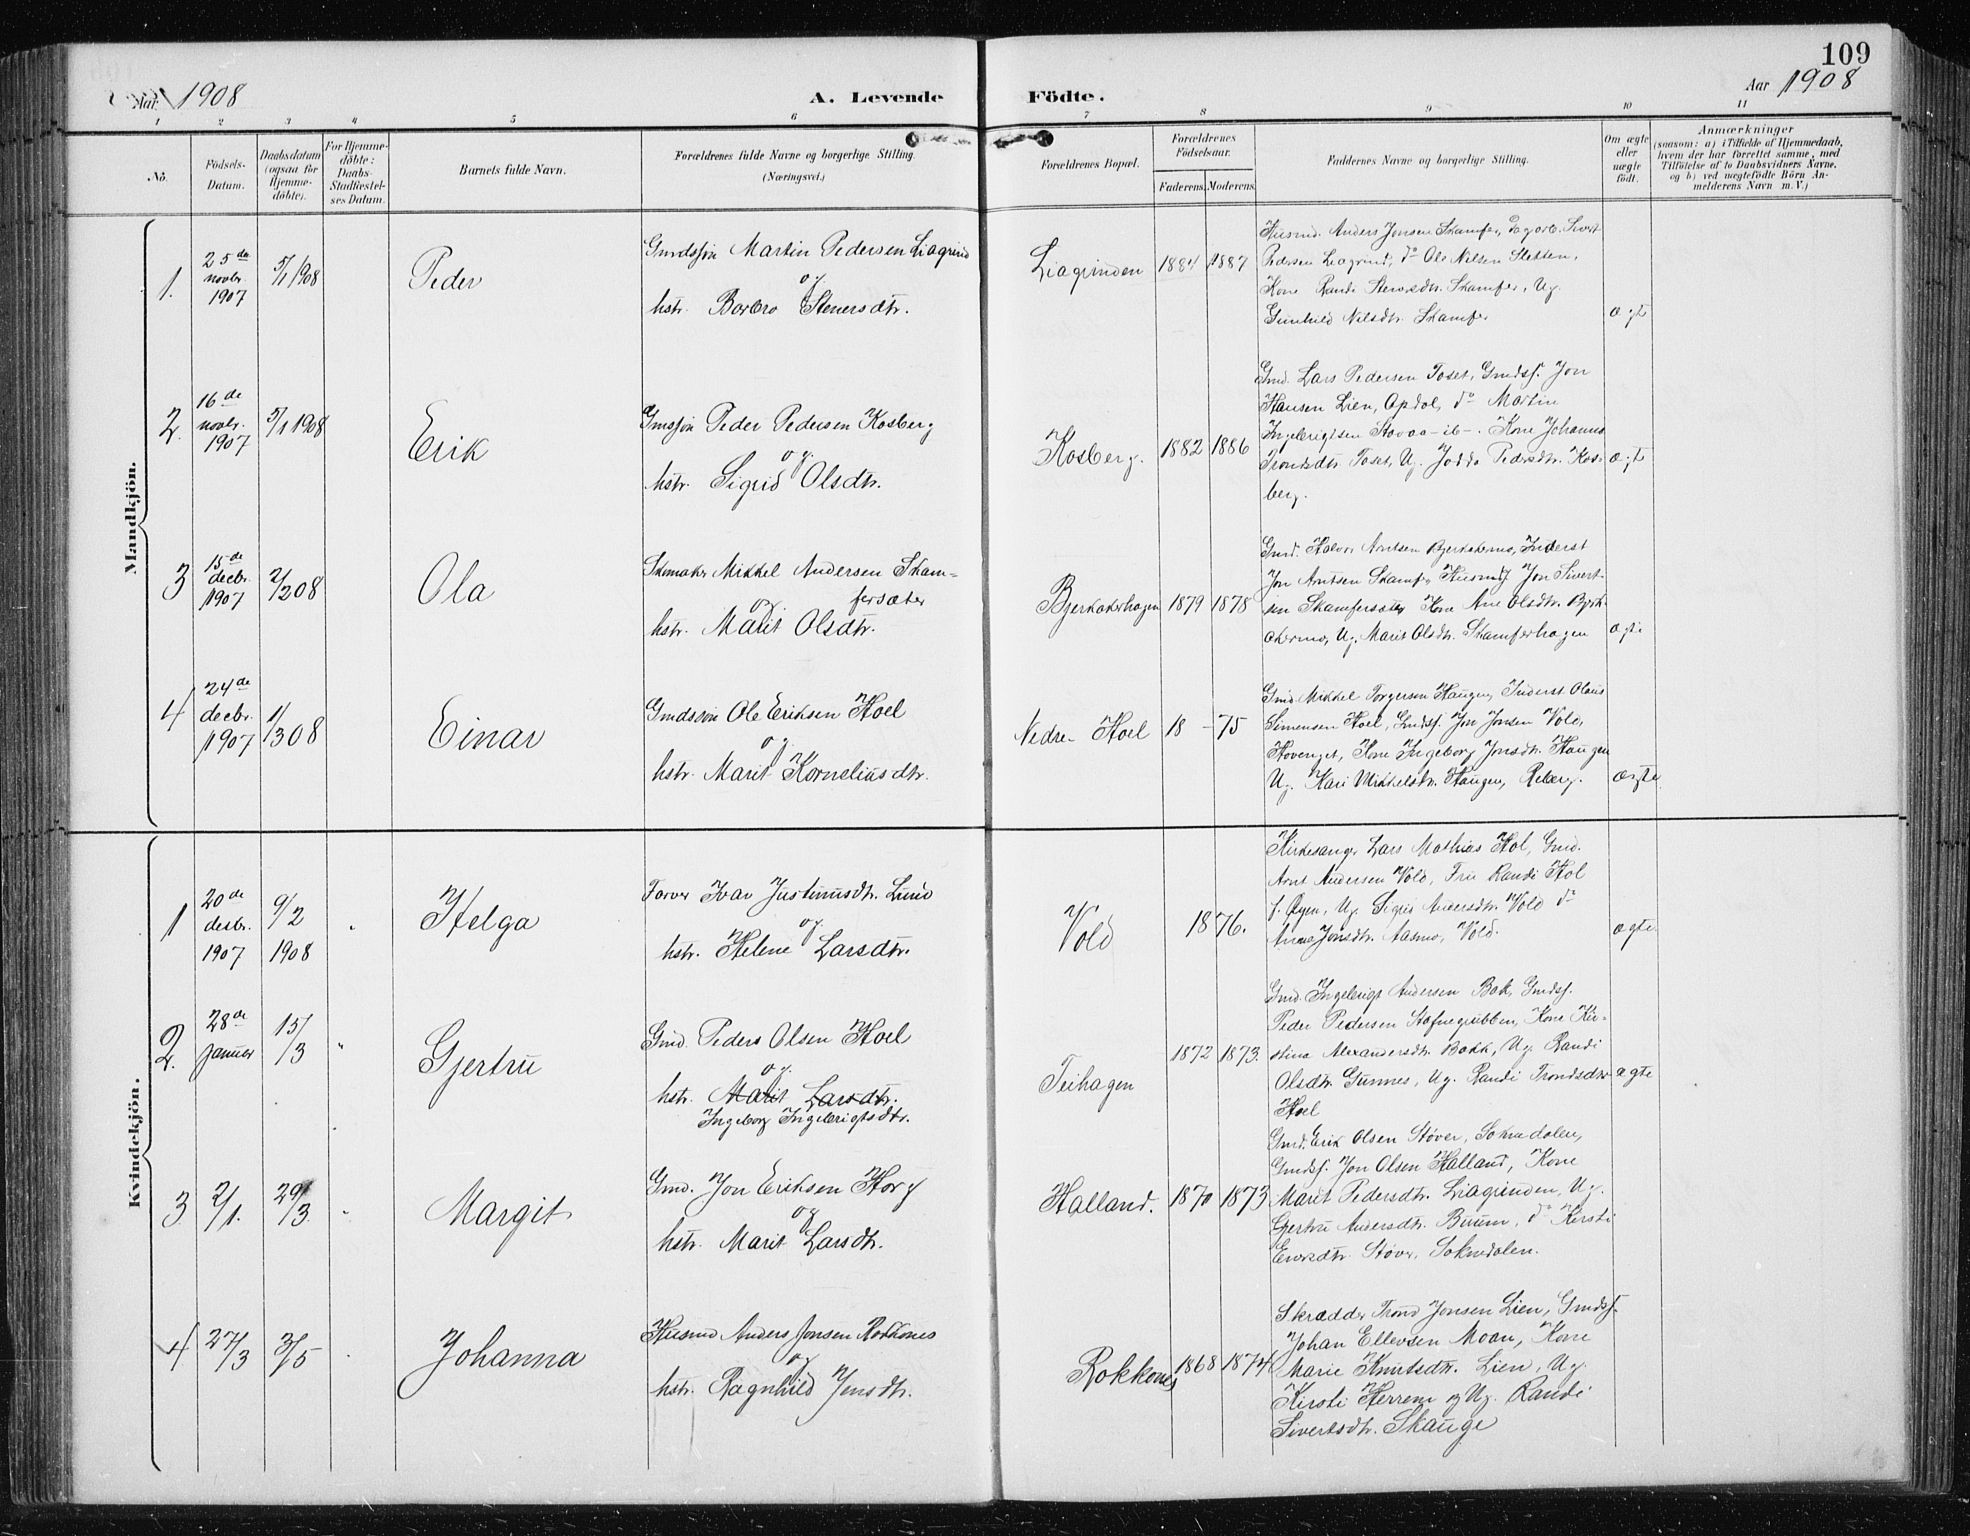 109
Aar 1908
A. Levende
Födte.
Aar 1908
1 2 3 4 5 6 7 8 9 10 11
No.
Födsels-
Datum.
Daabsdatum
(ogsaa for
Hjemme-
döbte).
For Hjemme-
döbte:
Daabs-
Stadfæstel-
ses Datum.
Barnets fulde Navn.
Forældrenes fulde Navne og borgerlige Stilling.
(Næringsvei.)
Forældrenes Bopæl.
Forældrenes
Födselsaar.
Faderens. Moderens.
Faddernes Navne og borgerlige Stilling.
Om ægte
eller
uægte
födt.
Anmærkninger
(saasom: a) i Tilfælde af Hjemmedaab,
hvem der har forrettet samme, med
Tilföielse af to Daabsvidners Navne,
og b) ved uægtefödte Börn An-
melderens Navn m. V.)
Mandkjön.
1.
25de
novbr.
1907
5/1 1908
Peder
Gmdssøn Martin Pedersen Liagrind
og
hstr. Barbro Stenersdtr.
Liagrinden
1884 1887
Husmd. Anders Jonsen Skamfer, Dagarb. Sivert
Pedersen Liagrind, do Ole Nilsen Sletten,
Kone Randi Stenersdtr. Skamfer, Ug.
Gunhild Nilsdtr. Skamfer
ægte
2.
16de
novbr.
1907
5/1 1908
Erik
Gmssøn Peder Pedersen Kosberg
og
hstr. Sigrid Olsdtr.
Kosberg.
1882 1886
Gmd. Lars Pedersen Toset, Gmdsf. Jon
Hansen Lien, Opdal, do Martin
Ingebrigtsen Stavaa -ib-. Kone Johanna
Trondsdtr. Toset, Ug. Jodda Pedersdtr. Kos-
berg.
ægte
3
15de
decbr.
1907
2/2 08
Ola
Skomaker Mikkel Andersen Skam-
fersæter
og
hstr. Marit Olsdtr.
Bjerkakerhagen
1879 1878
Gmd. Halvor Arntsen Bjerkakermo, Inderst
Jon Arntsen Skamfer, Husmd Jon Sivert-
sen Skamfersæter, Kone Ane Olsdtr. Bjerk-
akermo, Ug. Marit Olsdtr. Skamferhagen
ægte
4
24de
decbr.
1907
1/3 08
Einar
Gmdssøn Ole Eriksen Hoel
og
hstr. Marit Korneliusdtr.
Nedre Hoel
18 - 75
Gmd. Mikkel Torgersen Haugen, Inderst Olaus
Simensen Hoel, Gmdsf. Jon Jonsen Vold,
Hovenget, Kone Ingeborg Jonsdtr. Haugen
Ug. Kari Mikkelsdtr. Haugen, Reberg.
ægte
Kvindekjön.
1
20de
desbr.
1907
9/2
1908
Helga
Farver Ivar Justinusdtr. Lund
og
hstr. Helene Larsdtr.
Vold
1876.
Kirkesanger Lars Mathias Hol, Gmd.
Arnt Andersen Vold, Fru Randi Hol
f. Øyen, Ug. Sigrid Andersdtr. Vold do
Anne Jonsdtr. Aasmo, Vold.
ægte
2.
28de
januar
15/3
"
Gjertru
Gmd. Peder Olsen Hoel
og
hstr. Marit Larsdtr.
Ingeborg Ingebrigtsdtr.
Teihagen
1872 1873.
Gmd. Ingebrigt Andersen Bak, Gmdsf.
Peder Pedersen Stafnegrubben, Kone Kir-
stina Alexandersdtr. Bakk, Ug. Randi
Olsdtr. Gunnes, Ug. Randi Trondsdtr.
Hoel
ægte
3
2/1.
29/3.
Margit
Gmd. Jon Eriksen Horg
og
hstr. Marit Larsdtr.
Halland.
1870 1873
Gmd. Erik Olsen Støver, Soknedalen,
Gmdsf. Jon Olsen Halland, Kone
Marit Pedersdtr. Liagrinden, Ug.
Gjertru Andersdtr. Buum, do Kirsti
Eriksdtr. Støver, Soknedalen.
4
27/3
3/5
Johanna
Husmd Anders Jonsen Rokkones
og
hstr. Ragnhild Jonsdtr.
Rokkones
1868 1874
Skrædder Trond Jonsen Lien, Gmdsf.
Johan Ellevsen Moan, Kone
Marie Knutsdtr. Lien, Ug.
Kirsti Herrem og Ug. Randi
Sivertsdtr. Skauge